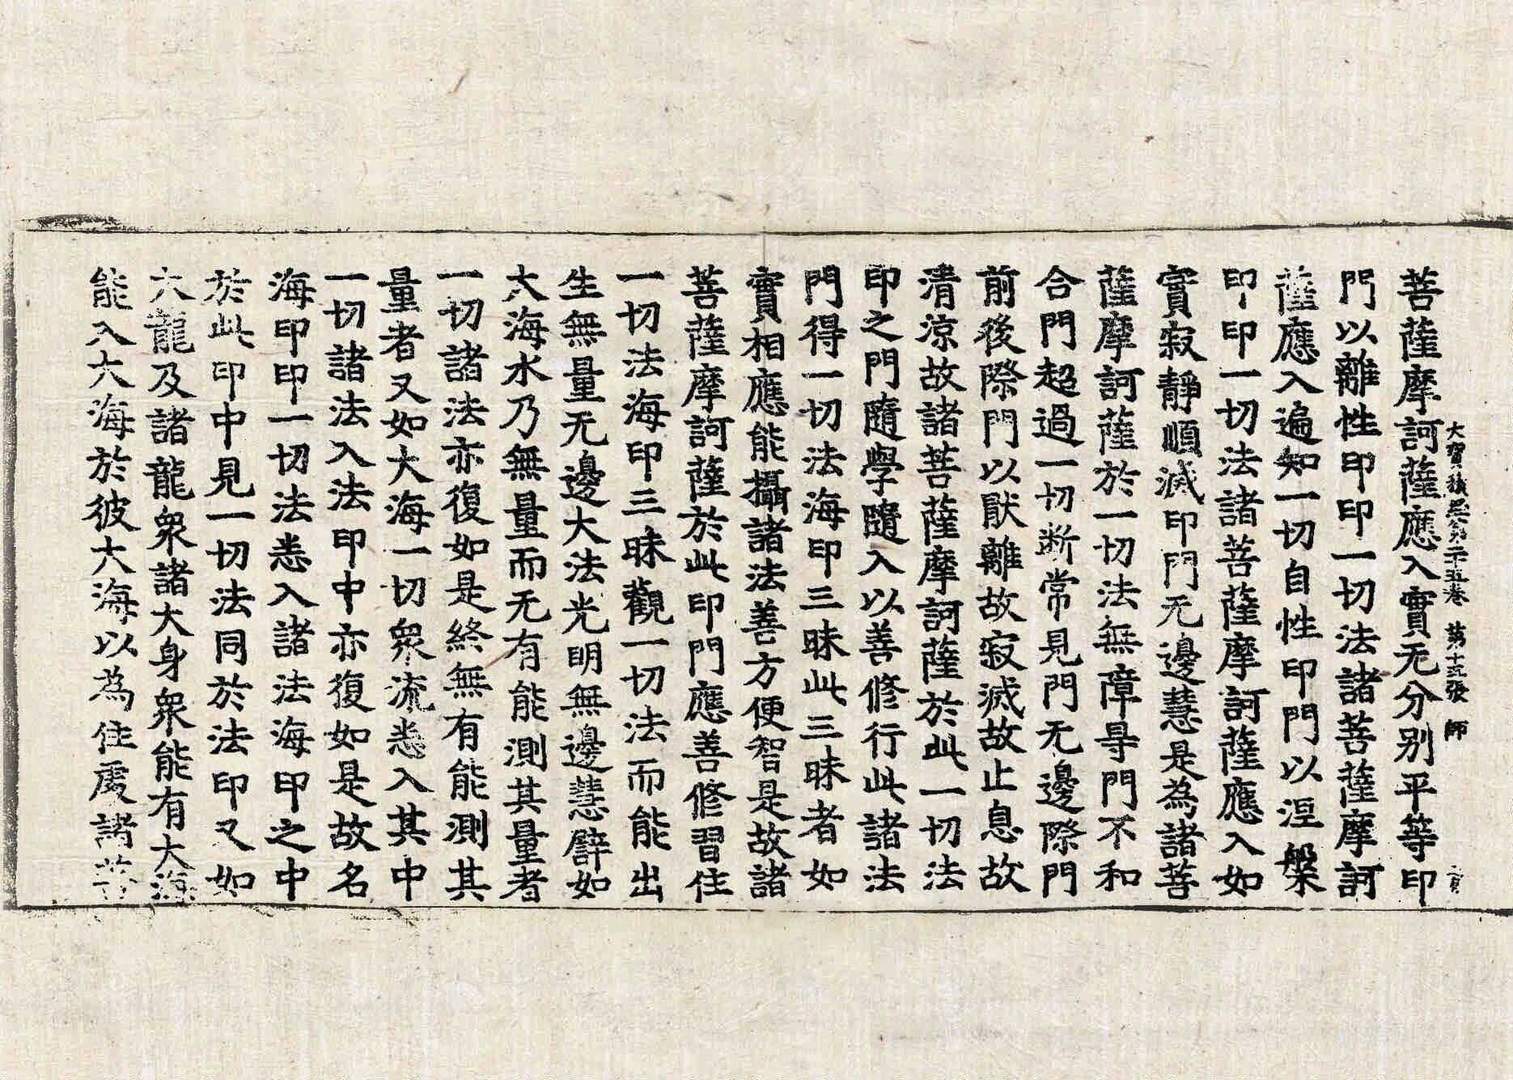 菩薩摩訶薩應入實无分别平等印
大寶積經第二十五卷 第十五張 師
門以離性印印一切法諸菩薩摩訶
薩應入遍知一切自性印門以涅槃
印印一切法諸菩薩摩訶薩應入如
實寂靜順滅印門无邊慧是為諸菩
薩摩訶薩於一切法無障㝵門不和
合門超過一切断常見門无邊際門
前後際門以猒離故寂滅故止息故
清涼故諸菩薩摩訶薩於此一切法
印之門隨學隨入以善修行此諸法
門得一切法海印三昧此三昧者如
實相應能攝諸法善方便智是故諸
菩薩摩訶薩於此印門應善修習住
一切法海印三昧觀一切法而能出
生無量无邊大法光明無邊慧譬如
大海水乃無量而无有能測其量者
一切諸法亦復如是終無有能測其
量者又如大海一切衆流悉入其中
一切諸法入法印中亦復如是故名
海印印一切法悉入諸法海印之中
於此印中見一切法同於法印又如
大龍及諸龍衆諸大身衆能有大海
能入大海於彼大海以為住處諸菩